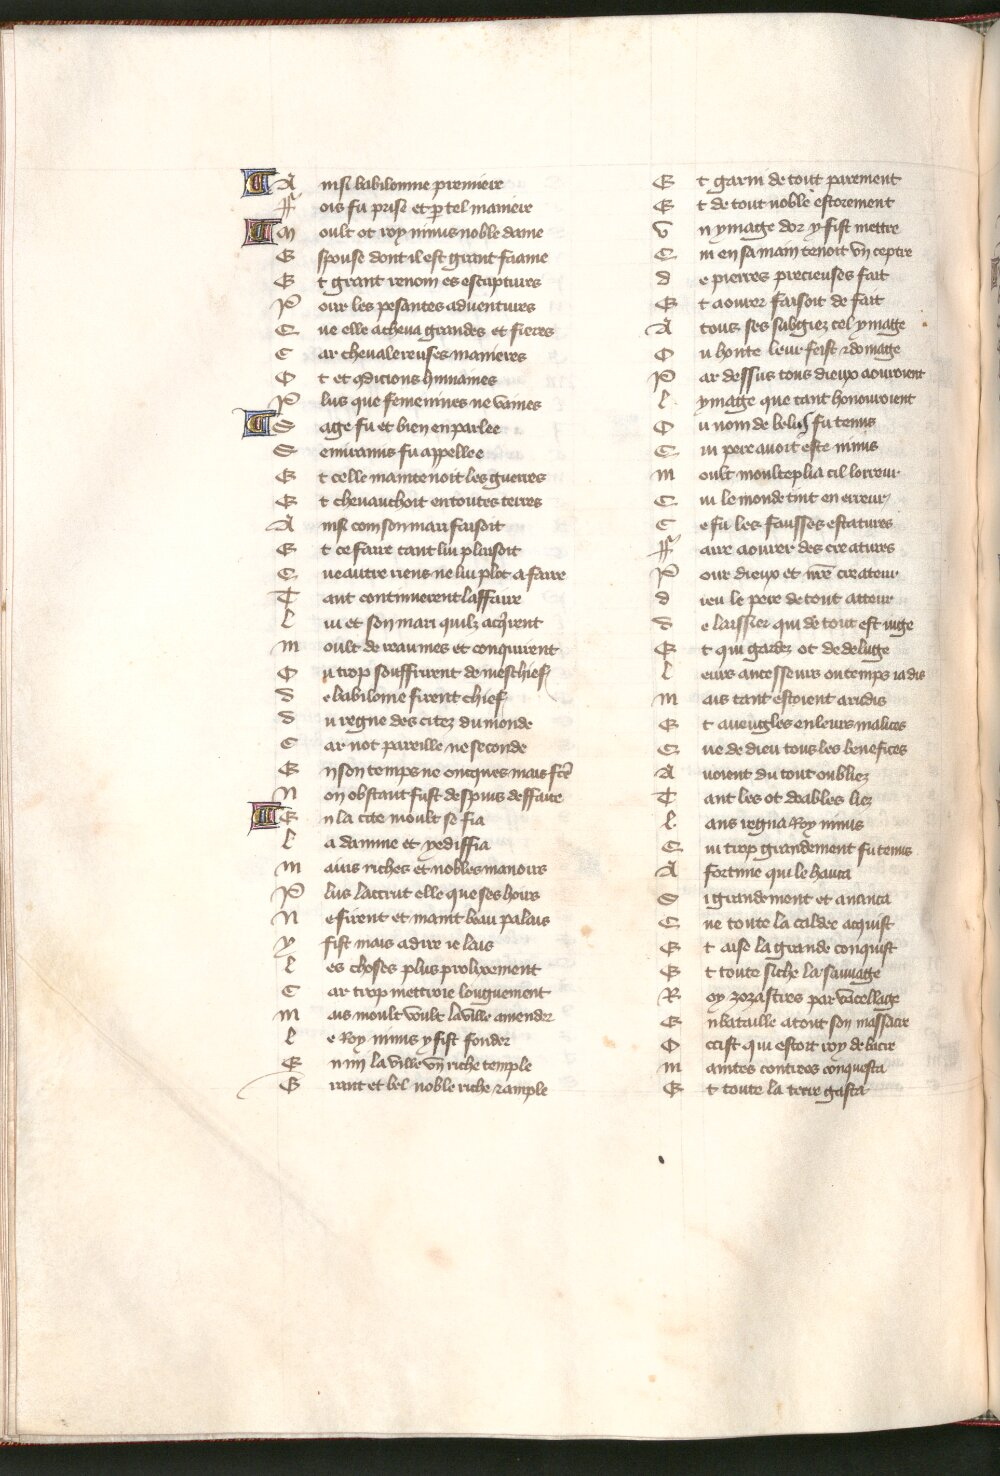 Ainsi babilonne premiere
ffois fu prise et par tel maniere
Moult ot roy ninus noble dame
Espouse dont il est grant fame
Et grant renom es escriptures
Pour les pesantes adventures
Que elle acheva grandes et fieres
Car chevalereuses manieres
Ot et condicions humaines
Plus que femenines ne vaines
Sage fu et bien en parlee
Semiramis fu appellee
Et celle maintenoit les guerres
Et chevauchoit en toutes terres
Ainsi com son mari faisoit
Et ce faire tant lui plaisoit
Que autre riens ne lui plot a faire
Tant continuerent laffaire
lui et son mari quilz acqirent
moult de reaumes et conquirent
Ou trop souffrirent de meschief
de babiloine firent chief
du regne des citez du monde
Car not pareille ne seconde
En son temps ne oncques mais fcte
Non obstant fust despuis deffaite
En la cite moult se fia
la damme et y ediffia
mains riches et nobles manoirs
Plus laccrut elle que ses hoirs
Ne firent et maint beau palais
y fist mais a dire je lais
les choses plus prolixement
Car trop mettroie longuement
mais moult voult la ville amender
le Roy ninus y fist fonder
Enmi la ville un riche temple
Grant et bel noble riche et ample
Et garni de tout parement
Et de tout noble estorement
Un ymage dor y fist mettre
Qui en sa main tenoit un ceptre
de pierres precieuses fait
Et aourer faisoit de fait
A tous ses subgiez cel ymage
Ou honte leur feist et domage
Par dessus tous dieux aouroient
lymage que tant honnouroient
Ou nom de belus fu tenus
Qui pere avoit este ninus
moult moulteplia cil lorreur
Qui le monde tint en erreur
Ce fu les fausses estatures
ffaire aourer des creatures
Pour dieux et nre createur
dieu le pere de tout atteur
de laissier qui de tout est juge
Et qui gardez ot de deluge
leurs ancesseurs ou temps jadis
mais tant estoient arudis
Et aveugles en leurs malices
Que de dieu tous les benefices
Avoient du tout oubliez
Tant les ot deables liez
l ans regna Roy ninus
Qui trop grandement fu tenus
A fortune qui le hauca
Si grandement et avanca
Que toute la caldee acquist
Et aise la grande conquist
Et toute siche la sauvage
Roy zozastres par vacellage
En bataille a tout son massacre
Occist qui estoit roy de bacre
maintes contrees conquesta
Et toute la terre gasta